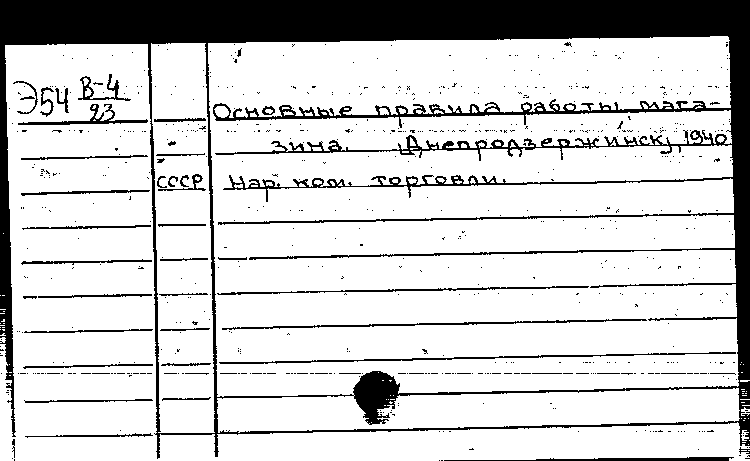 Э54 В-4
23
Основные правила работы мага-
зина. Днепродзержинск, 1940
СССР Нар. ком. торговли.